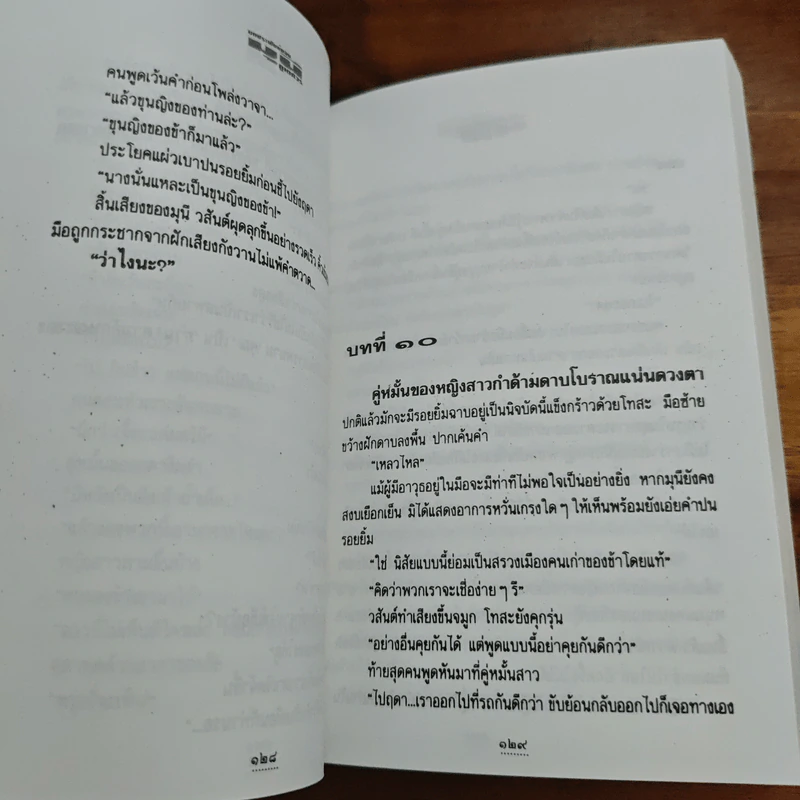 คนพูดเว้นคำก่อนโพล่งวาจา...
"แล้วขุนญิงของท่านล่ะ?"
"ขุนญิงของข้าก็มาแล้ว"
ประโยคแผ่วเบาปนรอยยิ้มก่อนชี้ไปยังฤดา
"นางนั่นแหละเป็นขุนญิงของข้า!"
สิ้นเสียงของมุนี วสันต์ผุดลุกขึ้นอย่างรวดเร็ว
มือถูกกระชากจากฝักเสียงกังวานไม่แพ้คำตวาด...
"ว่าไงนะ?"
๑๒๘
บทที่ ๑๐
คู่หมั้นของหญิงสาวกำด้ามดาบโบราณแน่นดวงตา
ปกติแล้วมักจะมีรอยยิ้มฉาบอยู่เป็นนิจบัดนี้แข็งกร้าวด้วยโทสะ มือซ้าย
ขว้างฝักดาบลงพื้น ปากเค้นคำ
"เหลวไหล"
แม้ผู้มีอาวุธอยู่ในมือจะมีท่าทีไม่พอใจเป็นอย่างยิ่ง หากมุนียังคง
สงบเยือกเย็น มิได้แสดงอาการหวั่นเกรงใด ๆ ให้เห็นพร้อมยังเอ่ยคำปน
รอยยิ้ม
"ใช่ นิสัยแบบนี้ย่อมเป็นสรวงเมืองคนเก่าของข้าโดยแท้"
"คิดว่าพวกเราจะเชื่อง่าย ๆ รึ"
วสันต์ทำเสียงขึ้นจมูก โทสะยังคุกรุ่น
"อย่างอื่นคุยกันได้ แต่พูดแบบนี้อย่าคุยกันดีกว่า"
ท้ายสุดคนพูดหันมาที่คู่หมั้นสาว
"ไปฤดา...เราออกไปที่รถกันดีกว่า ขับย้อนกลับออกไปก็เจอทางเอง
๑๒๙